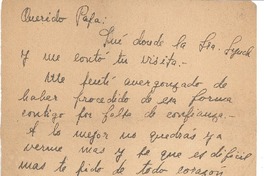 Querido Papa:
Fuí donde la Sra. Lynch
y me contó tu visita.-
Me sentí avergonzado de
haber procedido de esa forma
contigo por falta de confianza.-
A lo mejor no querrás ya
verme mas y se que es dificil
mas te pido de todo corazón